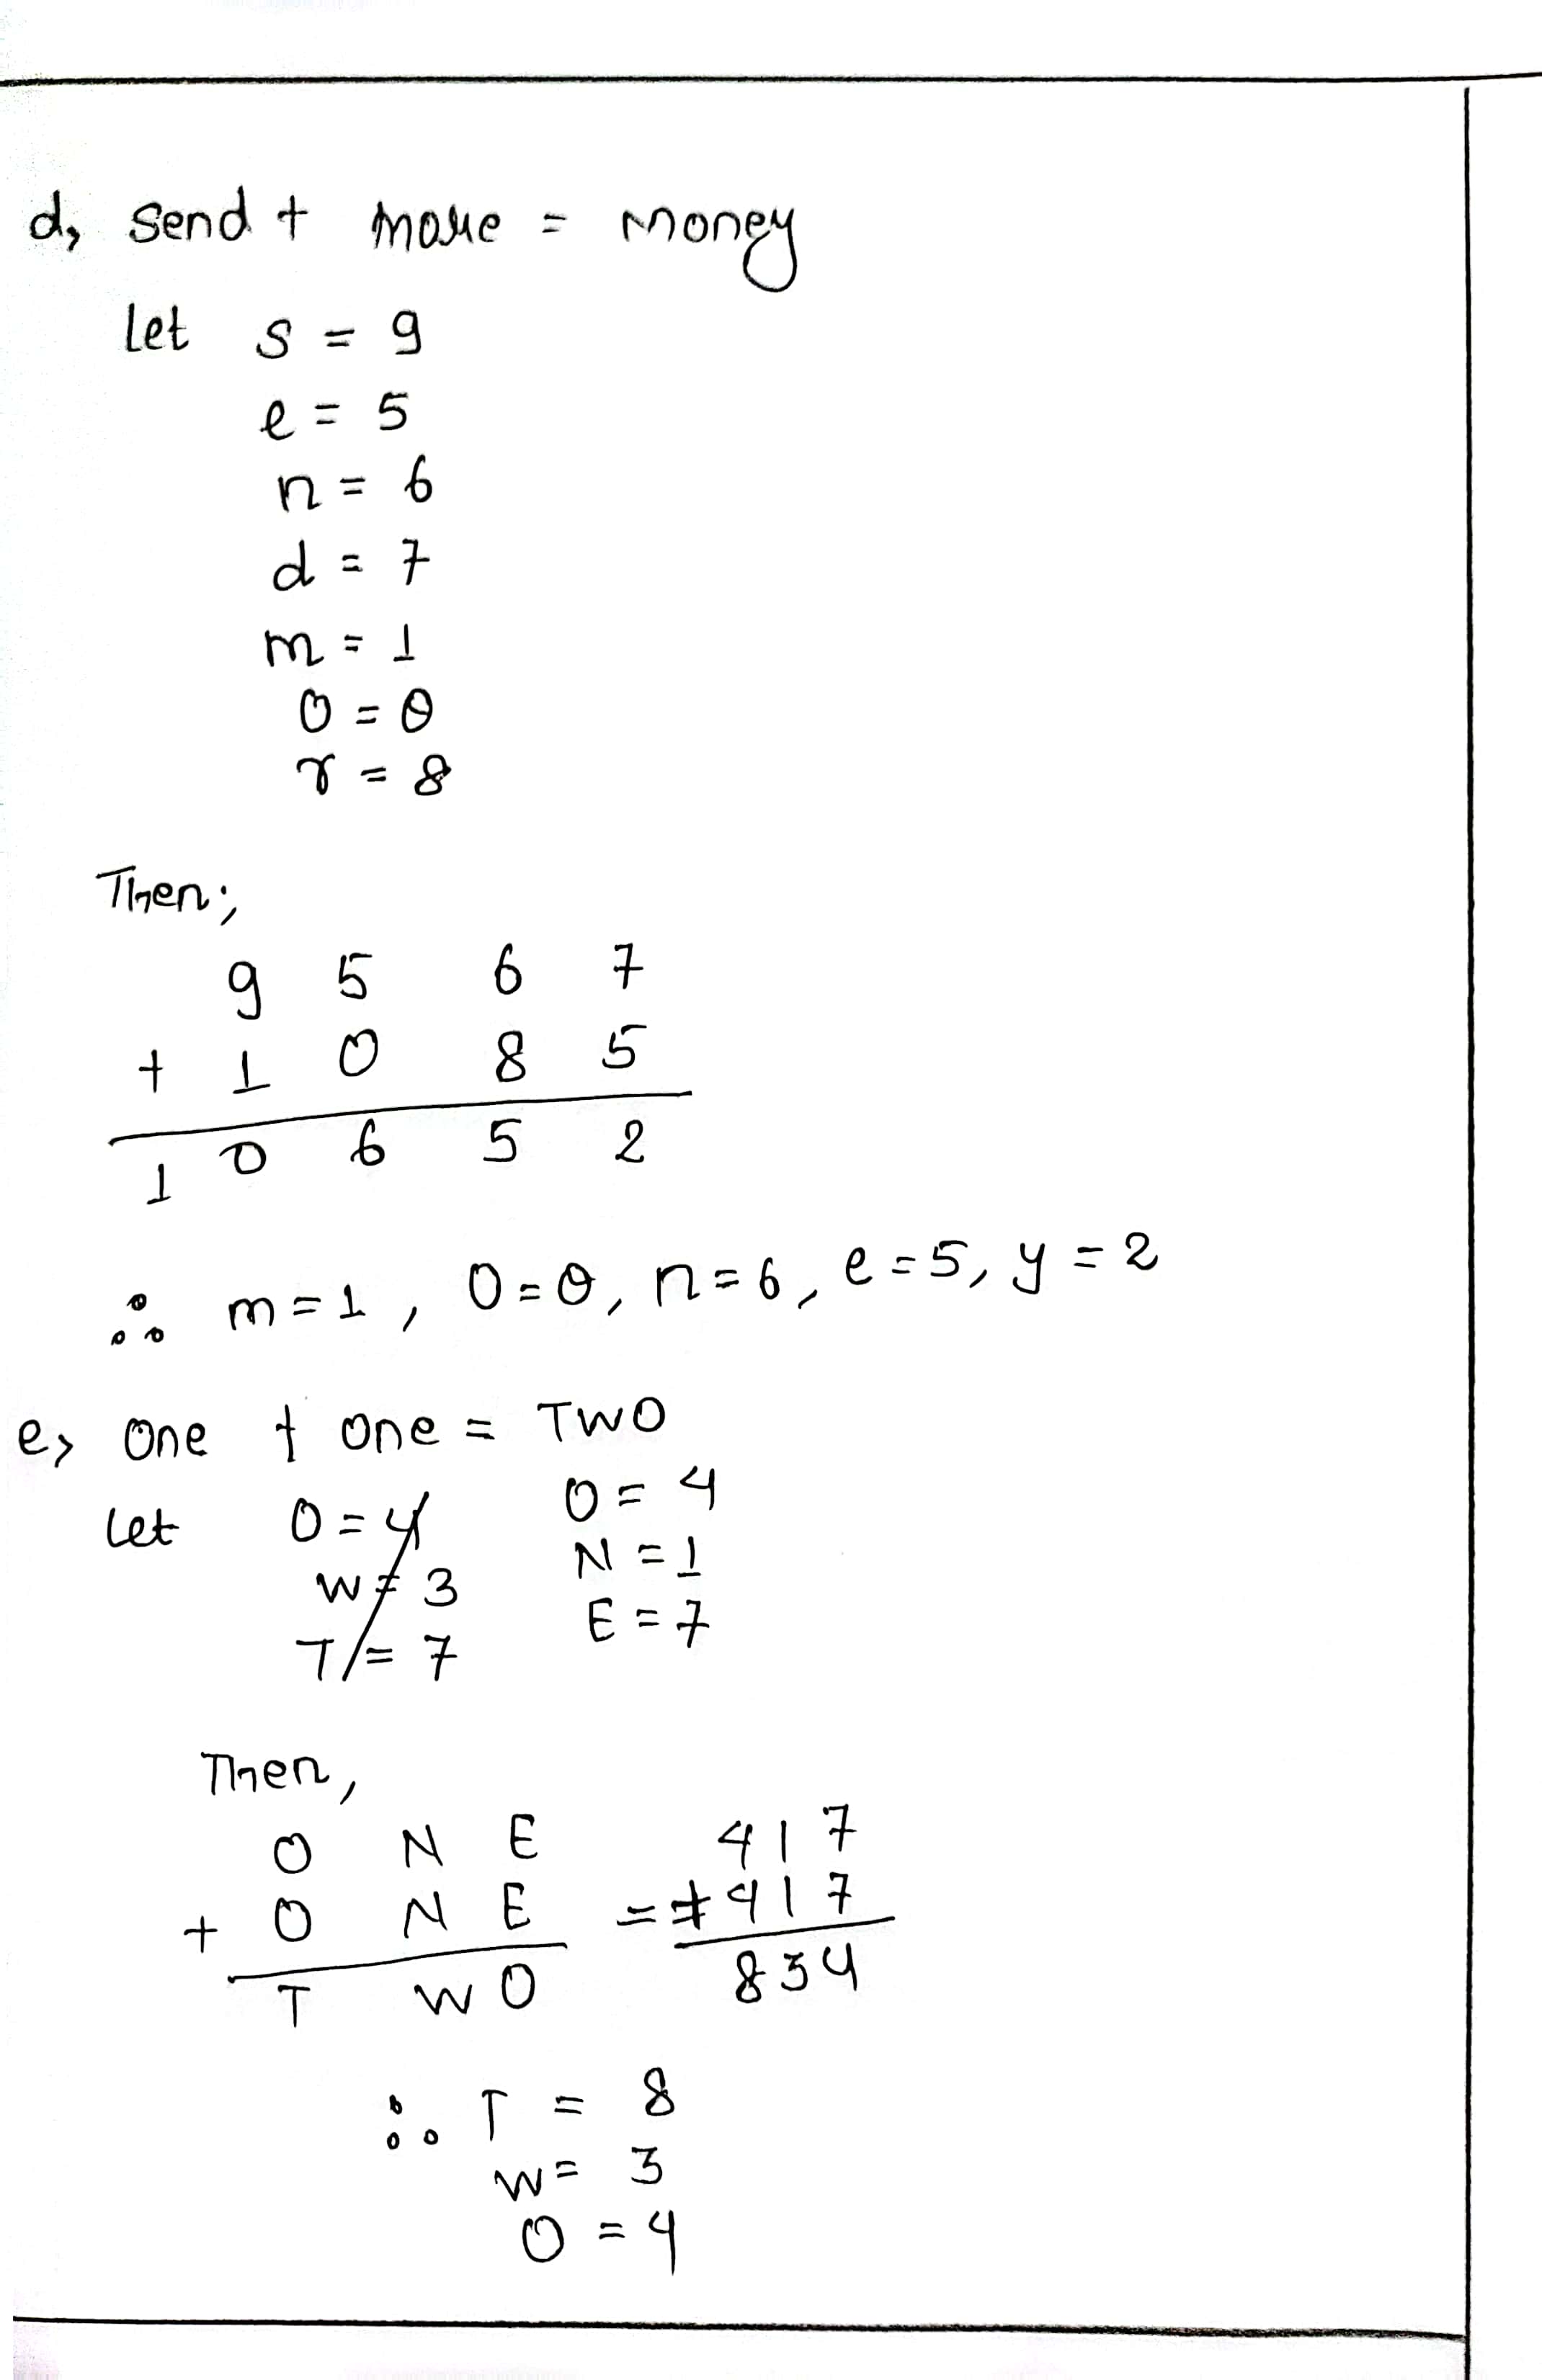 d, Send + more = Money
let s = 9
e = 5
n = 6
d = 7
m = 1
O = 0
r = 8
Then;
9 5 6 7
+ 1 0 8 5
1 0 6 5 2
∴ m = 1, O = 0, n = 6, e = 5, y = 2
e, One + One = TWO
Let O = 4 O = 4
W = 3 N = 1
T = 7 E = 7
Then,
O N E 417
+ O N E = +417
T W O 834
∴ T = 8
W = 3
O = 4